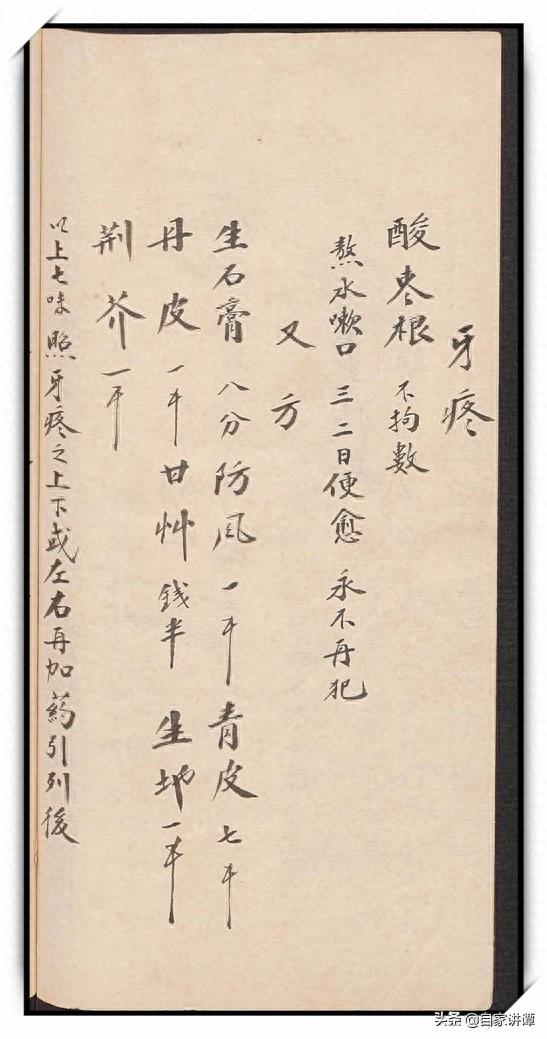 牙疼
酸枣根 不拘數
熬水嗽口 三二日便愈 永不再犯
又方
生石膏 八分 防风 一
青皮 七
丹皮 一 甘艸 钱半 生地 一
荆芥 一
以上七味 照牙疼之上下或左右再加药引列後
头条 @自家讲谭